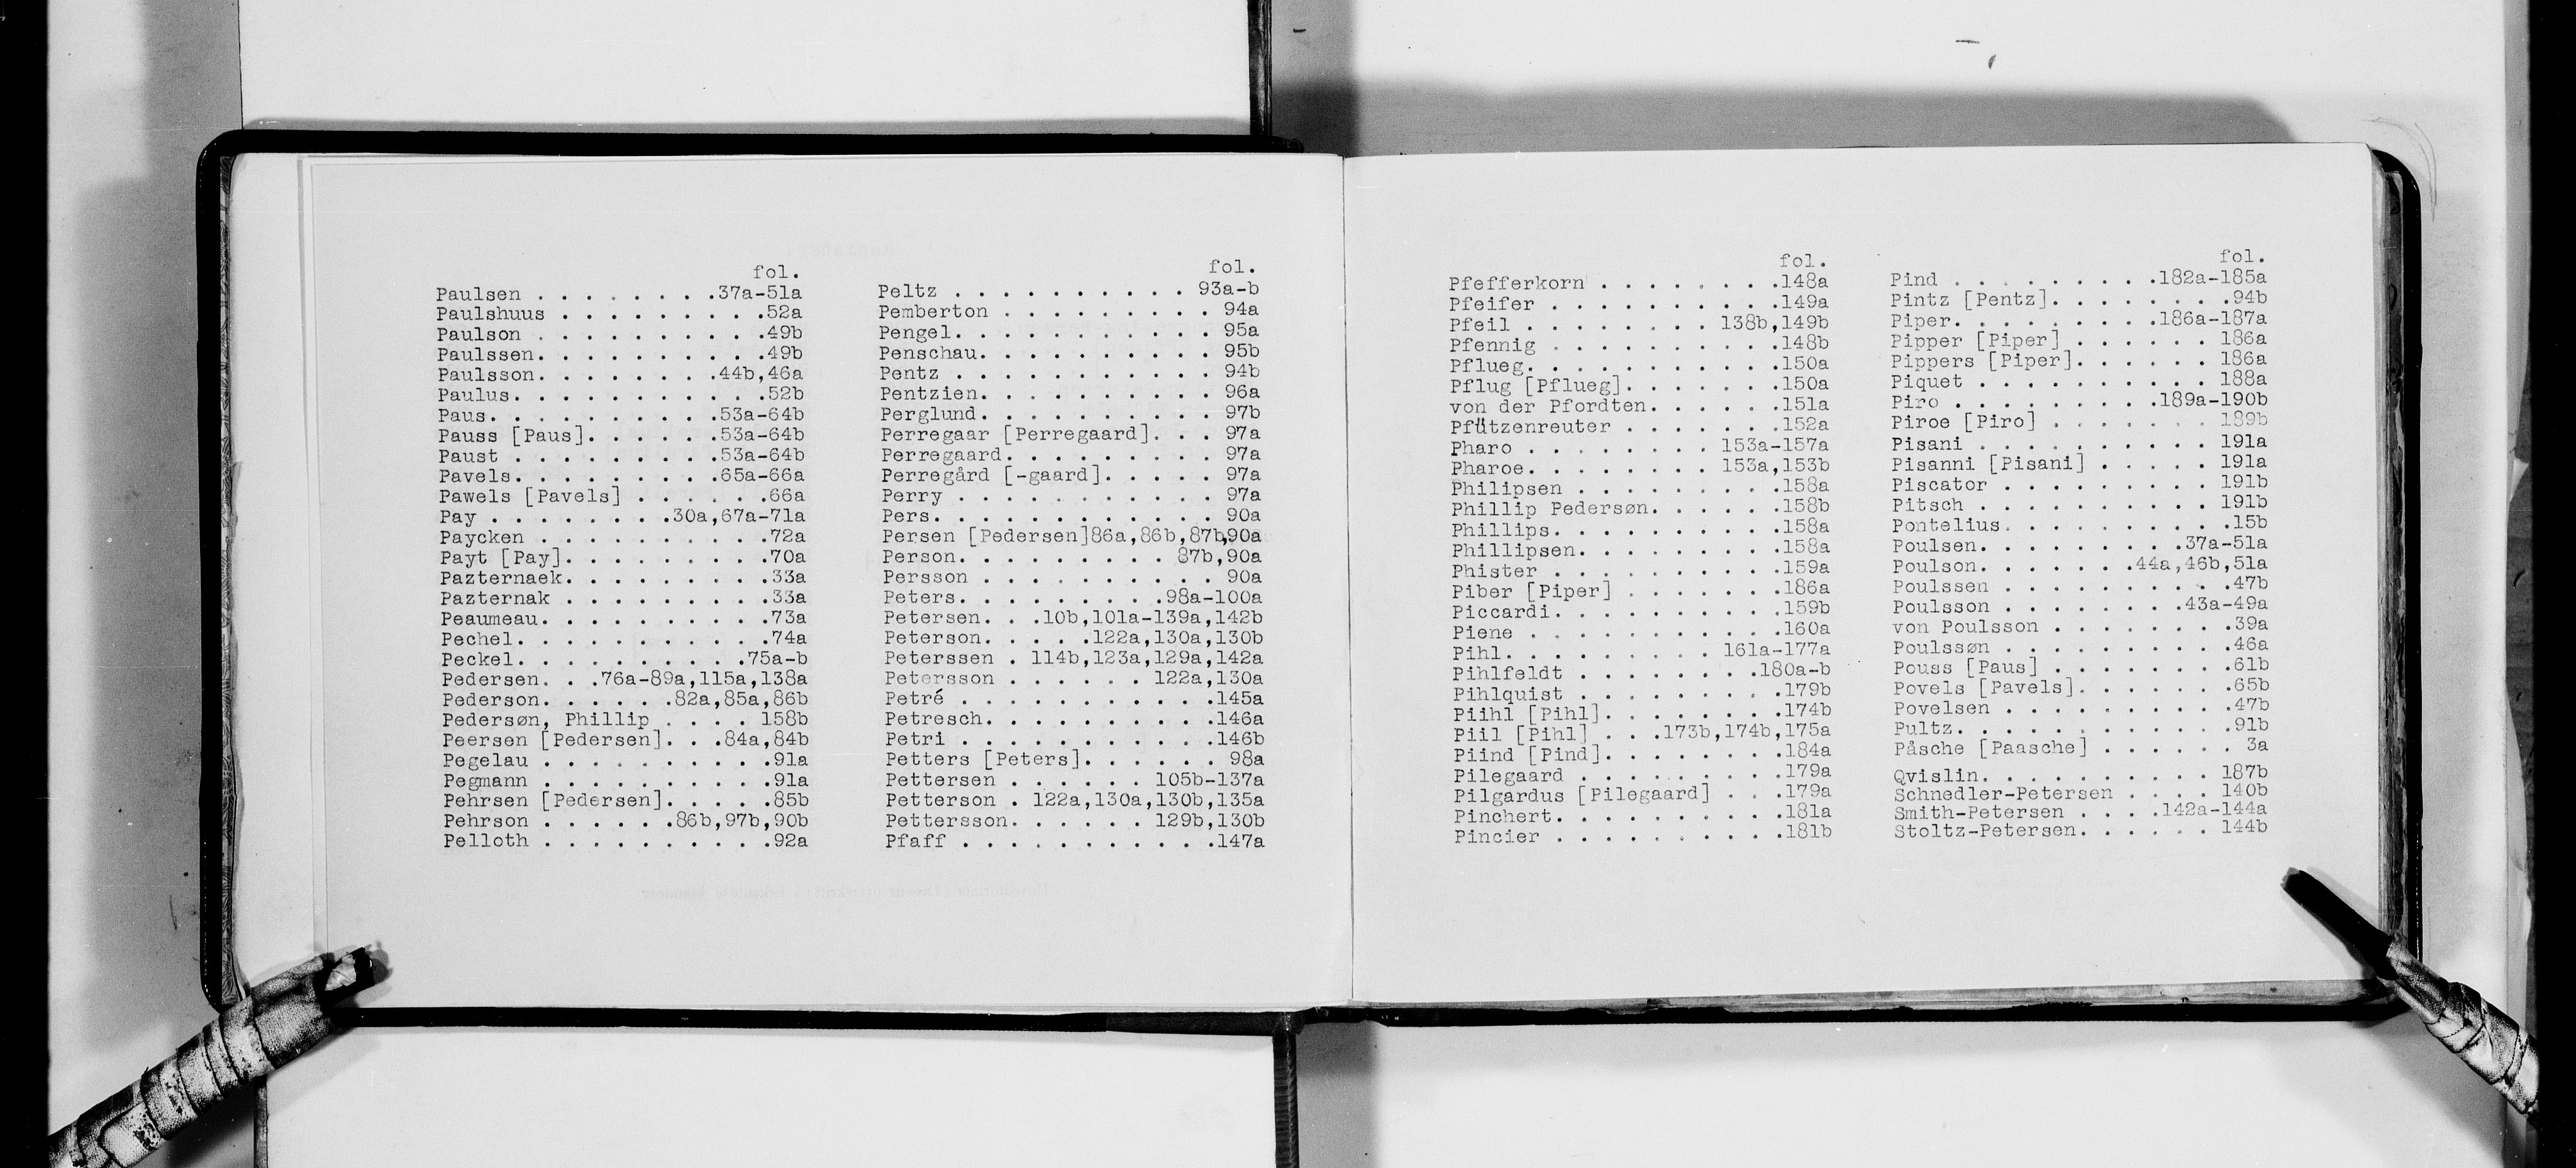 fol.
Paulsen . . . . . . . .37a-51a
Paulshuus . . . . . . . . . .52a
Paulson . . . . . . . . . . .49b
Paulssen. . . . . . . . . . .49b
Paulsson. . . . . . . . .44b,46a
Paulus. . . . . . . . . . . .52b
Paus. . . . . . . . . . .53a-64b
Pauss [Paus]. . . . . . .53a-64b
Paust . . . . . . . . . .53a-64b
Pavels. . . . . . . . . .65a-66a
Pawels [Pavels] . . . . . . .66a
Pay . . . . . . . . .30a,67a-71a
Paycken . . . . . . . . . . .72a
Payt [Pay]. . . . . . . . . .70a
Pazternaek. . . . . . . . . .33a
Pazternak . . . . . . . . . .33a
Peaumeau. . . . . . . . . . .73a
Pechel. . . . . . . . . . . .74a
Peckel. . . . . . . . . . .75a-b
Pedersen. . .76a-89a,115a,138a
Pederson. . . . . .82a,85a,86b
Pedersøn, Phillip . . . . 158b
Peersen [Pedersen]. . .84a,84b
Pegelau . . . . . . . . . . .91a
Pegmann . . . . . . . . . . .91a
Pehrsen [Pedersen]. . . . .85b
Pehrson . . . . . .86b,97b,90b
Pelloth . . . . . . . . . . .92a
fol.
Peltz . . . . . . . . . . 93a-b
Pemberton . . . . . . . . . 94a
Pengel. . . . . . . . . . . 95a
Penschau. . . . . . . . . . 95b
Pentz . . . . . . . . . . . 94b
Pentzien. . . . . . . . . . 96a
Perglund. . . . . . . . . . 97b
Perregaar [Perregaard]. . . 97a
Perregaard. . . . . . . . . 97a
Perregård [-gaard]. . . . . 97a
Perry . . . . . . . . . . . 97a
Pers. . . . . . . . . . . . 90a
Persen [Pedersen]86a,86b,87b,90a
Person. . . . . . . . . 87b,90a
Persson . . . . . . . . . . 90a
Peters. . . . . . . . .98a-100a
Petersen. . .10b,101a-139a,142b
Peterson. . . . .122a,130a,130b
Peterssen . 114b,123a,129a,142a
Petersson . . . . . . 122a,130a
Petré . . . . . . . . . . .145a
Petresch. . . . . . . . . .146a
Petri . . . . . . . . . . .146b
Petters [Peters]. . . . . . 98a
Pettersen . . . . . . 105b-137a
Petterson . 122a,130a,130b,135a
Pettersson. . . . . . 129b,130b
Pfaff . . . . . . . . . . .147a
fol.
Pfefferkorn . . . . . . . .148a
Pfeifer . . . . . . . . . .149a
Pfeil . . . . . . . . 138b,149b
Pfennig . . . . . . . . . .148b
Pflueg. . . . . . . . . . .150a
Pflug [Pflueg]. . . . . . .150a
von der Pfordten. . . . . .151a
Pfützenreuter . . . . . . .152a
Pharo . . . . . . . . 153a-157a
Pharoe. . . . . . . . 153a,153b
Philipsen . . . . . . . . .158a
Phillip Pedersøn. . . . . .158b
Phillips. . . . . . . . . .158a
Phillipsen. . . . . . . . .158a
Phister . . . . . . . . . .159a
Piber [Piper] . . . . . . .186a
Piccardi. . . . . . . . . .159b
Piene . . . . . . . . . . .160a
Pihl. . . . . . . . . 161a-177a
Pihlfeldt . . . . . . . .180a-b
Pihlquist . . . . . . . . .179b
Piihl [Pihl]. . . . . . . .174b
Piil [Pihl] . . .173b,174b,175a
Piind [Pind]. . . . . . . .184a
Pilegaard . . . . . . . . .179a
Pilgardus [Pilegaard] . . .179a
Pinchert. . . . . . . . . .181a
Pincier . . . . . . . . . .181b
fol.
Pind . . . . . . . . .182a-185a
Pintz [Pentz]. . . . . . . .94b
Piper. . . . . . . . .186a-187a
Pipper [Piper] . . . . . . 186a
Pippers [Piper]. . . . . . 186a
Piquet . . . . . . . . . . 188a
Piro . . . . . . . . .189a-190b
Piroe [Piro] . . . . . . . 189b
Pisani . . . . . . . . . . 191a
Pisanni [Pisani] . . . . . 191a
Piscator . . . . . . . . . 191b
Pitsch . . . . . . . . . . 191b
Pontelius. . . . . . . . . .15b
Poulsen. . . . . . . . .37a-51a
Poulson. . . . . . .44a,46b,51a
Poulssen . . . . . . . . . .47b
Poulsson . . . . . . . .43a-49a
von Poulsson . . . . . . . .39a
Poulssøn . . . . . . . . . .46a
Pouss [Paus] . . . . . . . .61b
Povels [Pavels]. . . . . . .65b
Povelsen . . . . . . . . . .47b
Pultz. . . . . . . . . . . .91b
Påsche [Paasche] . . . . . . 3a
Qvislin. . . . . . . . . . 187b
Schnedler-Petersen . . . . 140b
Smith-Petersen . . . .142a-144a
Stoltz-Petersen. . . . . . 144b